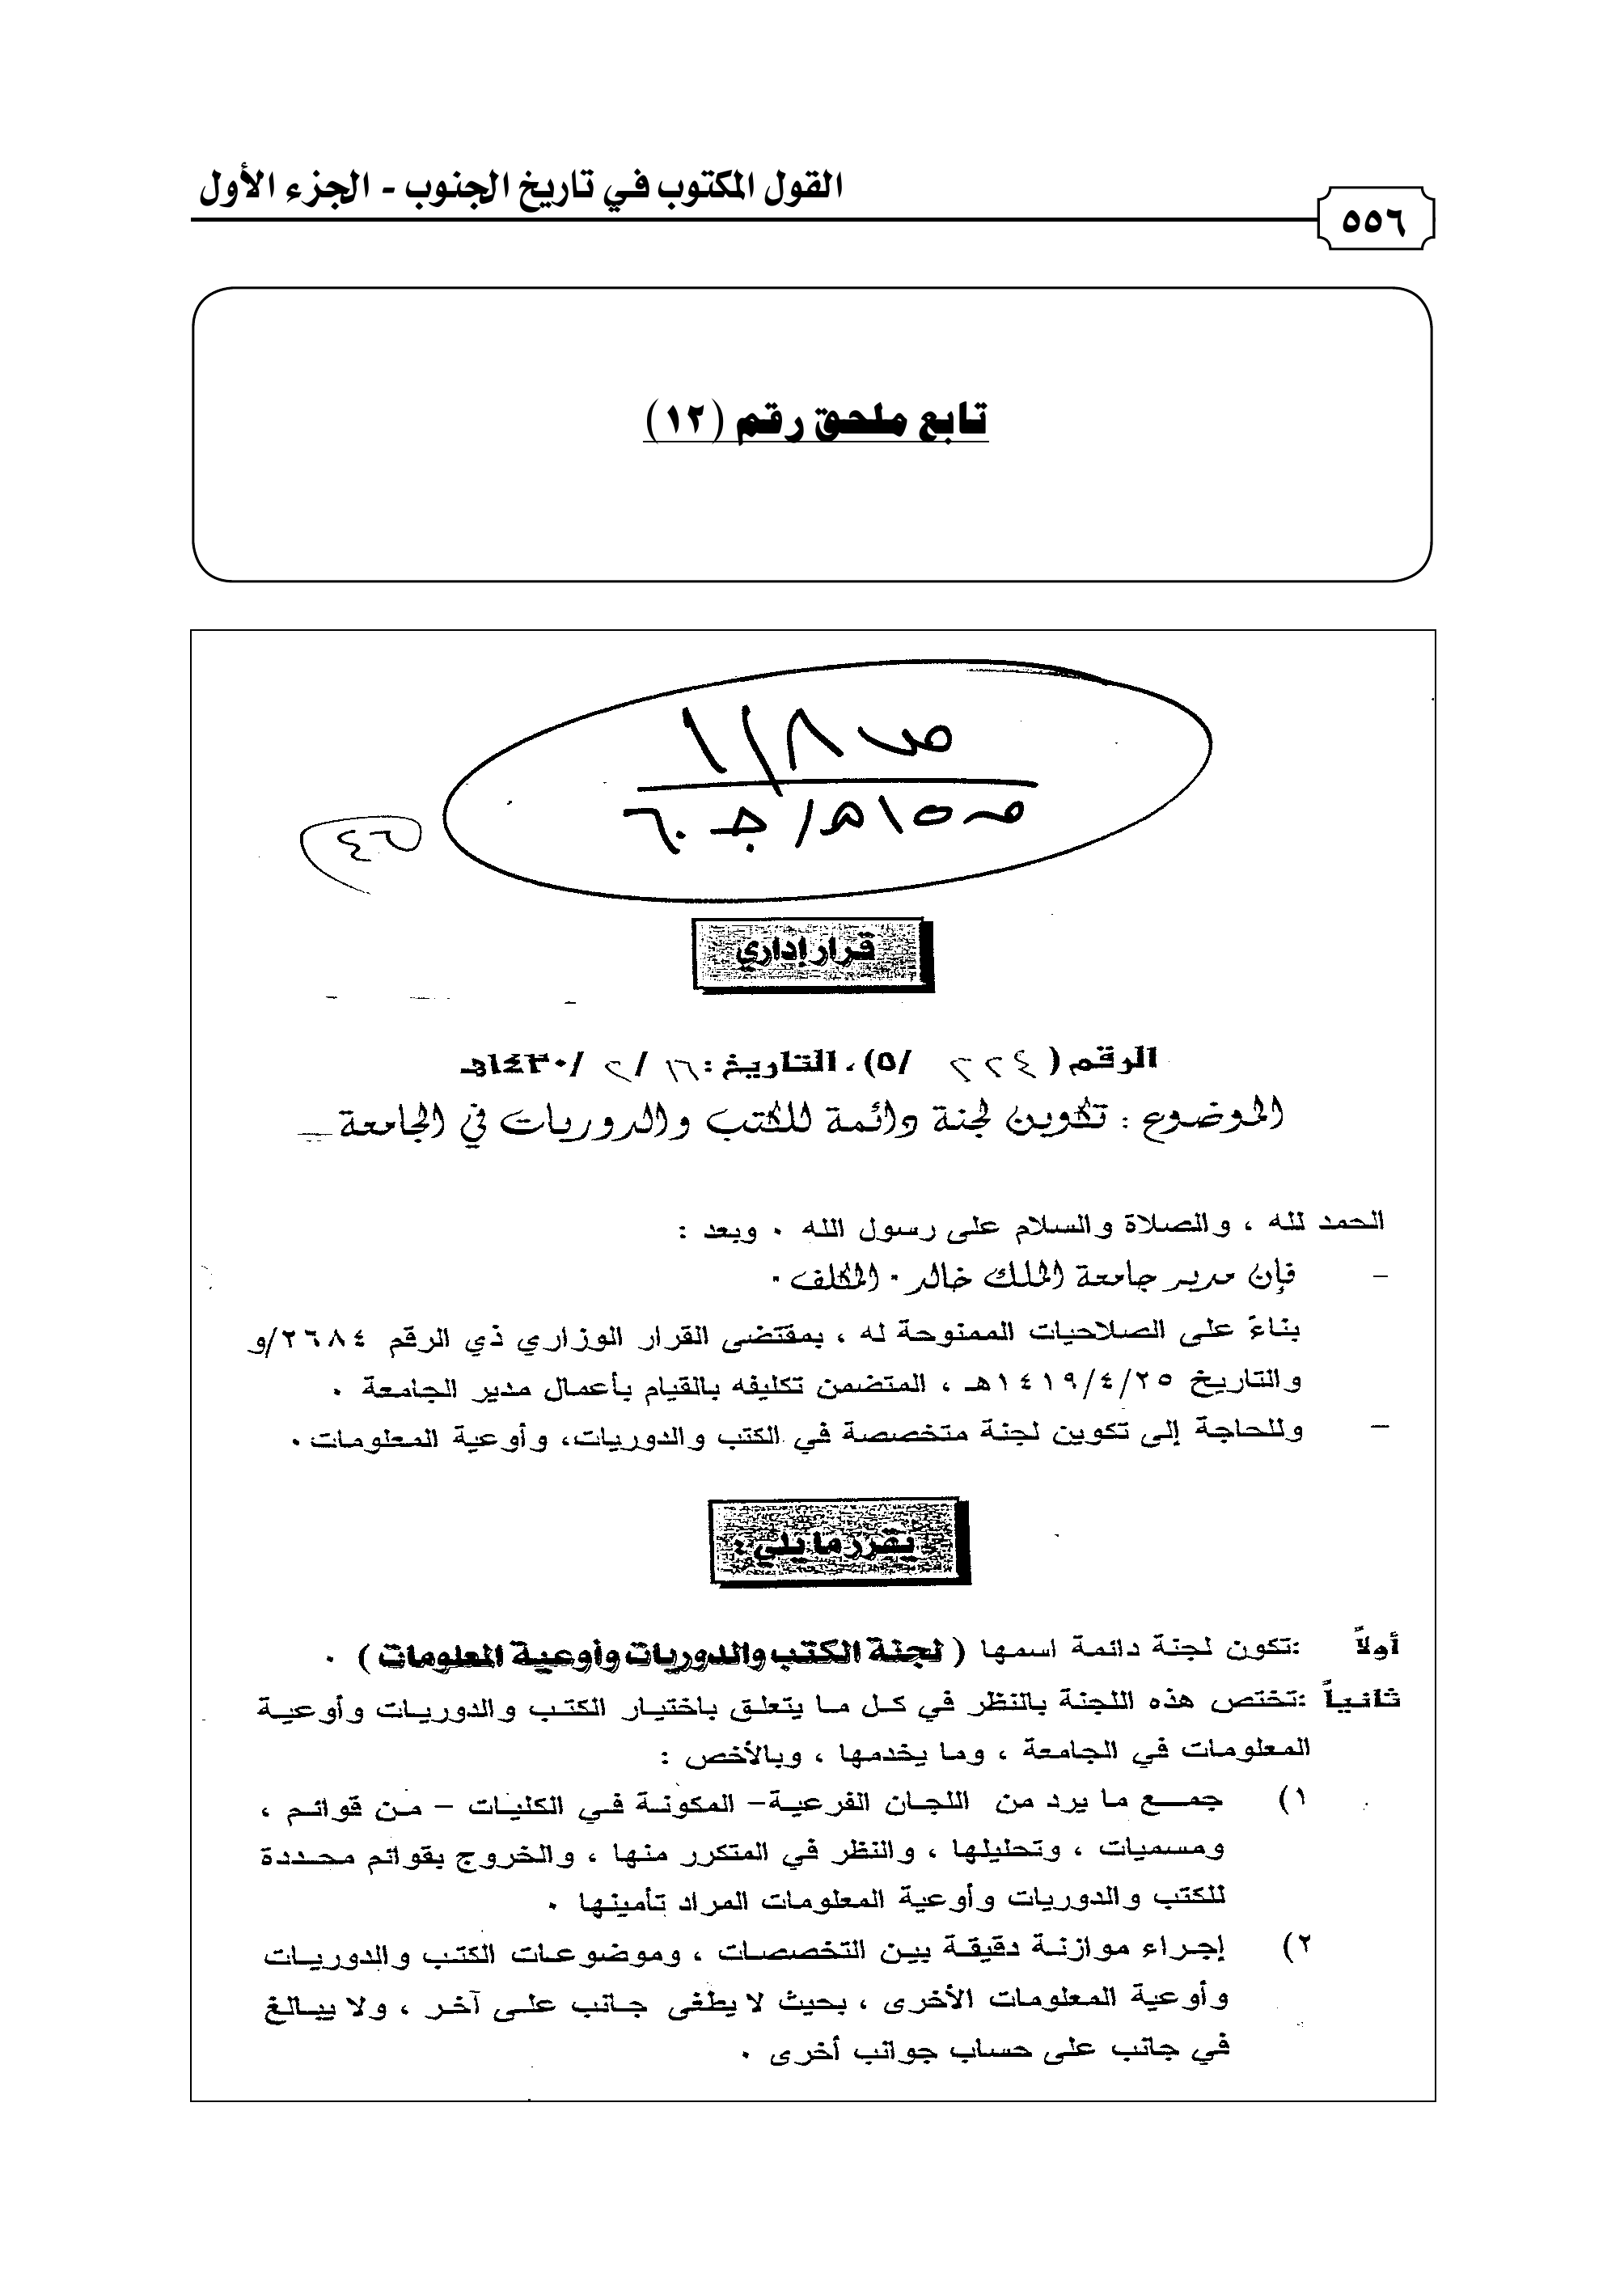 القول المكتوب في تاريخ الجنوب - الجزء الأول
٥٥٦
تابع ملحق رقم (١٢)
ص ١/٨
٤٦
قرار إداري
الرقم ( ٢٢٤ /٥)، التاريخ : ١٦/ ٢ /١٤٣٠هـ
الموضوع : تكوين لجنة دائمة للكتب والدوريات في الجامعة
الحمد لله ، والصلاة والسلام على رسول الله ٠ وبعد :
– فإن مدير جامعة الملك خالد ٠ المكلف ٠
بناءً على الصلاحيات الممنوحة له ، بمقتضى القرار الوزاري ذي الرقم ٢٦٨٤/و
والتاريخ ١٤١٩/٤/٢٥هـ ، المتضمن تكليفه بالقيام بأعمال مدير الجامعة ٠
– وللحاجة إلى تكوين لجنة متخصصة في الكتب والدوريات، وأوعية المعلومات ٠
يقرر ما يلي :
أولاً :تكون لجنة دائمة اسمها ( لجنة الكتب والدوريات وأوعية المعلومات ) ٠
ثانياً :تختص هذه اللجنة بالنظر في كل ما يتعلق باختيار الكتب والدوريات وأوعية
المعلومات في الجامعة ، وما يخدمها ، وبالأخص :
١) جمع ما يرد من اللجان الفرعية– المكونة في الكليات – من قوائم ،
ومسميات ، وتحليلها ، والنظر في المتكرر منها ، والخروج بقوائم محددة
للكتب والدوريات وأوعية المعلومات المراد تأمينها ٠
٢) إجراء موازنة دقيقة بين التخصصات ، وموضوعات الكتب والدوريات
وأوعية المعلومات الأخرى ، بحيث لا يطغى جانب على آخر ، ولا يبالغ
في جانب على حساب جوانب أخرى ٠